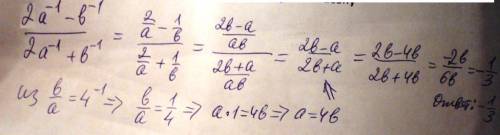 (2a⁻¹ - b⁻¹)/(2a⁻¹ + b⁻¹) = (2/a - 1/b)/(2/a + 1/b) = ((2b-a)/ab)/((2b+a)/ab) = (2b-a)/(2b+a) = (2b-4b)/(2b+4b) = -2b/6b = -1/3
из b/a = 4⁻¹ => b/a = 1/4 => a·1=4b => a=4b
Ответ: -1/3